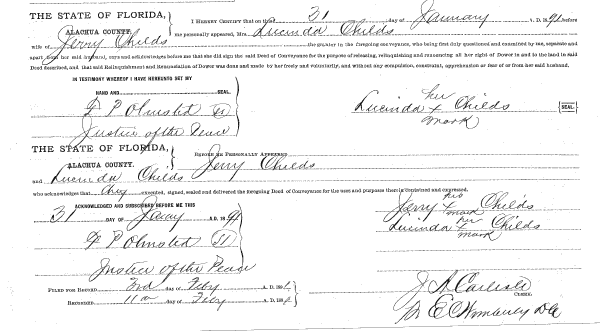 THE STATE OF FLORIDA,
ALACHUA COUNTY.
I HEREBY CERTIFY that on this 31 day of January A. D. 1891 before
me personally appeared, Mrs. Lucinda Childs
wife of Jerry Childs the grantor in the foregoing conveyance, who being first duly questioned and examined by me, separate and
apart from her said husband, did acknowledge before me that she did sign the said Deed of Conveyance for the purpose of releasing, relinquishing and renouncing all her right of Dower in and to the land in said
Deed described, and that said Relinquishment and Renunciation of Dower was done and made by her freely and voluntarily, and without any compulsion, constraint, apprehension or fear of or from her said husband.
IN TESTIMONY WHEREOF I HAVE HEREUNTO SET MY
HAND AND SEAL.
F P Olmsted
Justice of the Peace
her
Lucinda x Childs [SEAL]
mark
THE STATE OF FLORIDA,
ALACHUA COUNTY.
BEFORE ME PERSONALLY APPEARED Jerry Childs
and Lucinda Childs
who acknowledges that they executed, signed, sealed and delivered the foregoing Deed of Conveyance for the uses and purposes therein contained and expressed.
ACKNOWLEDGED AND SUBSCRIBED BEFORE ME THIS
31 DAY OF Jany A. D. 18
F P Olmsted
Justice of the Peace
his
Jerry x Childs
mark
her
Lucinda x Childs
mark
FILED FOR RECORD 3rd day of Feby A. D. 189
RECORDED 11th day of Feby A. D. 189
J A Carlisle
CLERK.
E O Wimberly D C